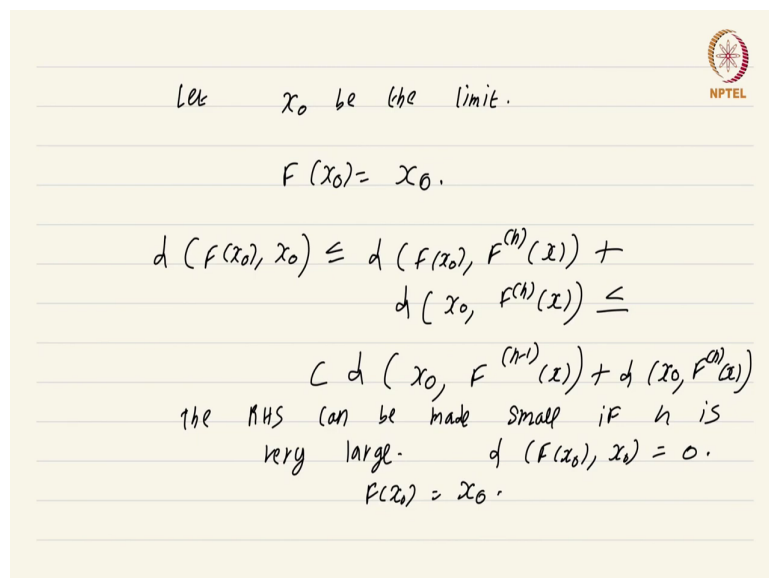 NPTEL
Let x₀ be the limit.
F (x₀) = x₀.
d (F(x₀), x₀) ≤ d (F(x₀), F⁽ⁿ⁾(x)) +
d (x₀, F⁽ⁿ⁾(x)) ≤
C d (x₀, F⁽ⁿ⁻¹⁾(x)) + d (x₀, F⁽ⁿ⁾(x))
The RHS can be made small if n is
very large. d (F(x₀), x₀) = 0.
F(x₀) = x₀.